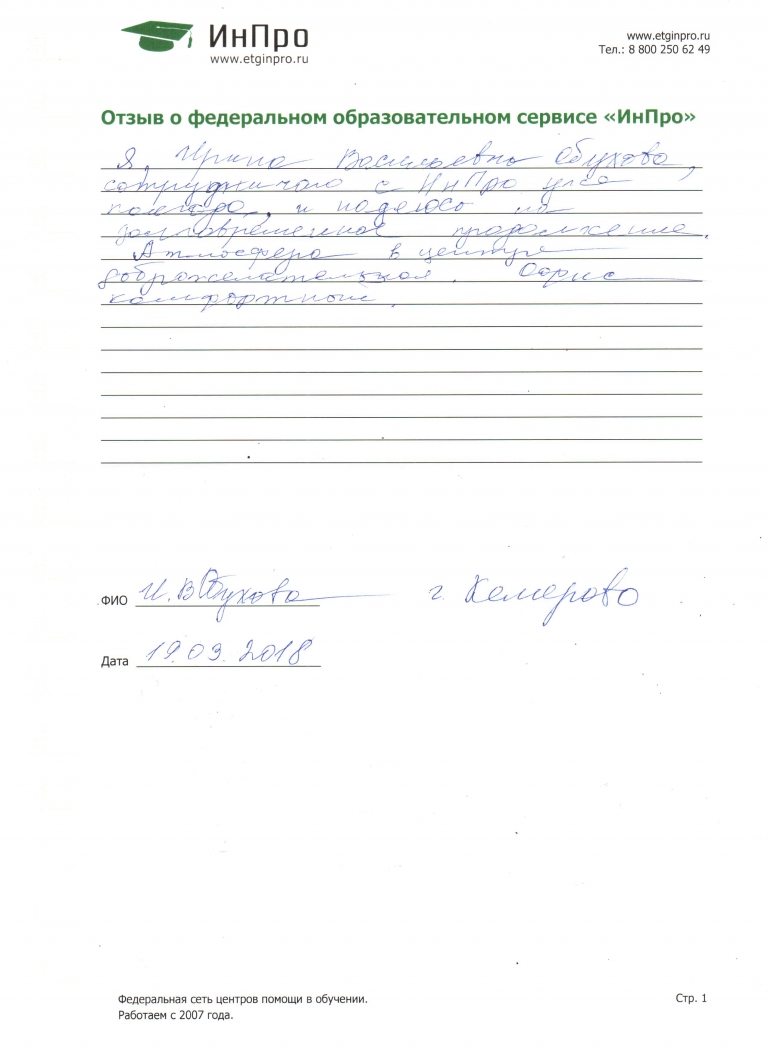 ИнПро
www.etginpro.ru
www.etginpro.ru
Тел.: 8 800 250 62 49
Отзыв о федеральном образовательном сервисе «ИнПро»
Я, Ирина Васильевна Обухова,
сотрудничаю с ИнПро уже
полгода, и надеюсь на
долговременное продолжение.
Атмосфера в центре
доброжелательная. Офис
комфортный.
ФИО И.В Обухова г. Кемерово
Дата 19.03.2018
Федеральная сеть центров помощи в обучении.
Работаем с 2007 года.
Стр. 1